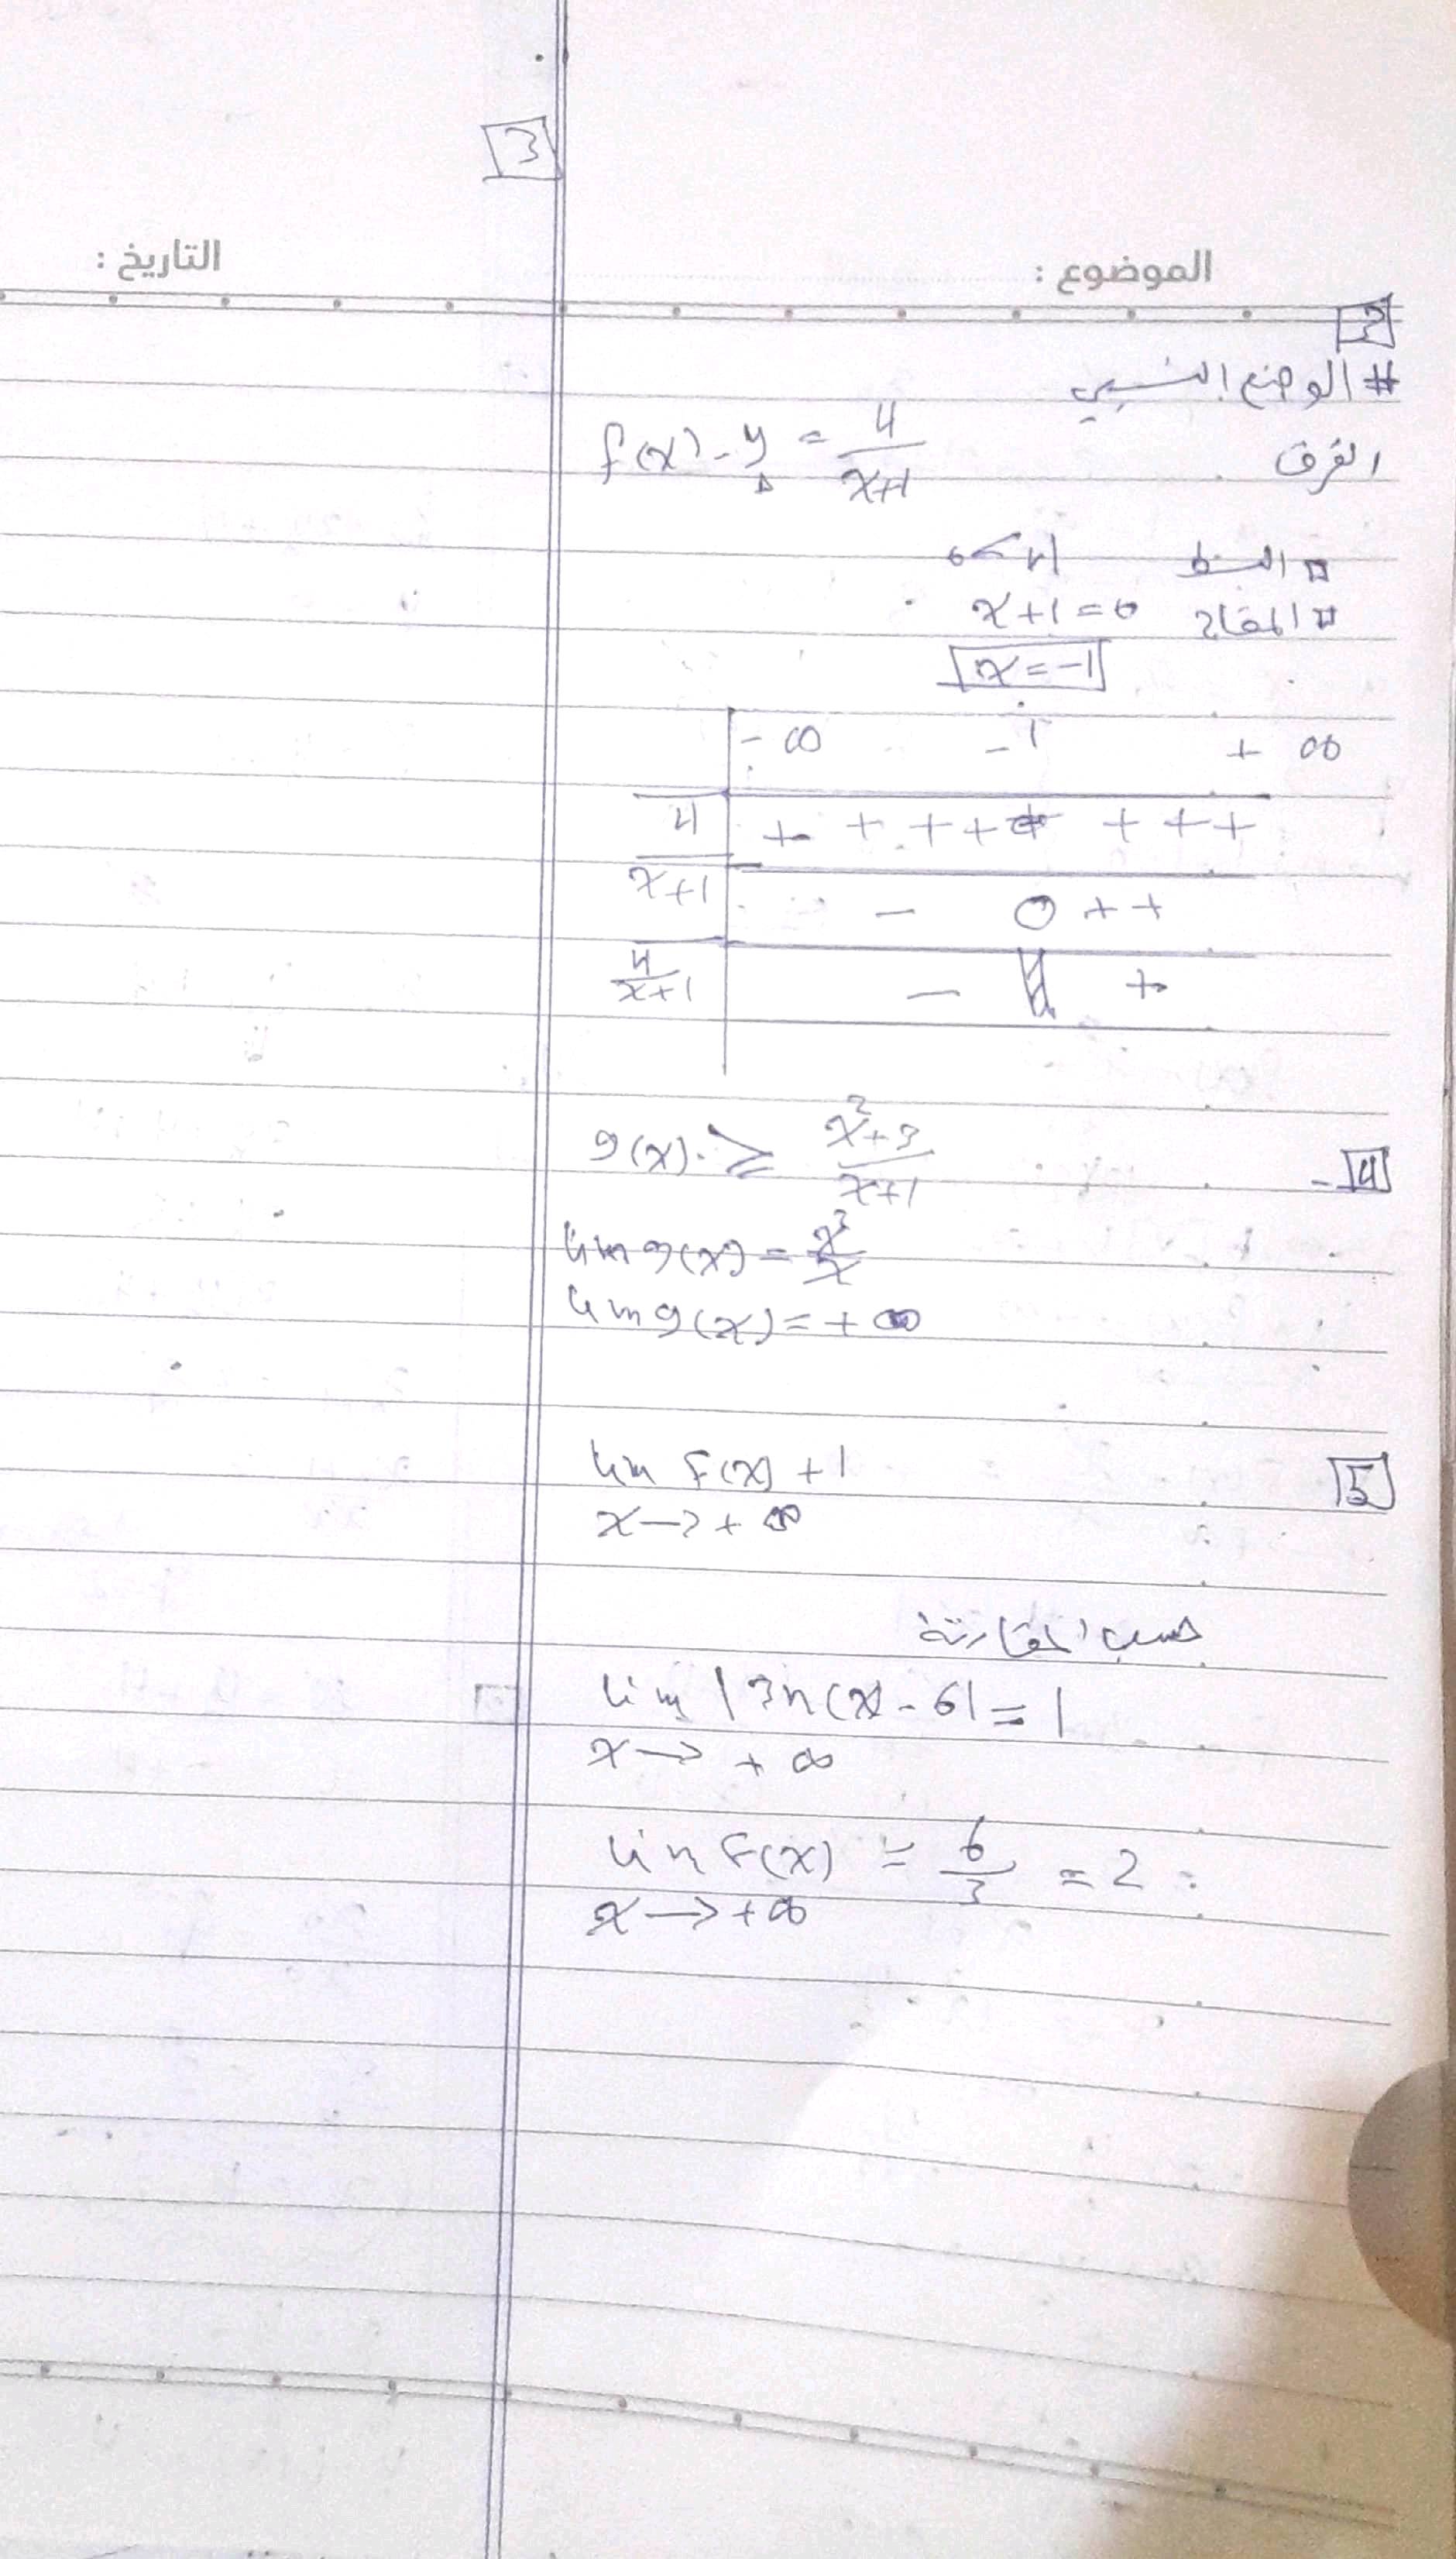 3
الموضوع : التاريخ :
3
# الوضع النسبي
الفرق f(x) - y = 4/x+1
Δ
□ البسط 4>0
□ المقام x+1=0
x=-1
-∞ -1 +∞
4 + + + + + + + +
x+1 - 0 + +
4/x+1 - +
4 - g(x) ≥ x²+3/x+1
lim g(x) = x²/x
lim g(x) = +∞
5 lim f(x) + 1
x → +∞
حسب المقارنة
lim |3n(x) - 6| = 1
x → +∞
lim f(x) = 6/3 = 2
x → +∞